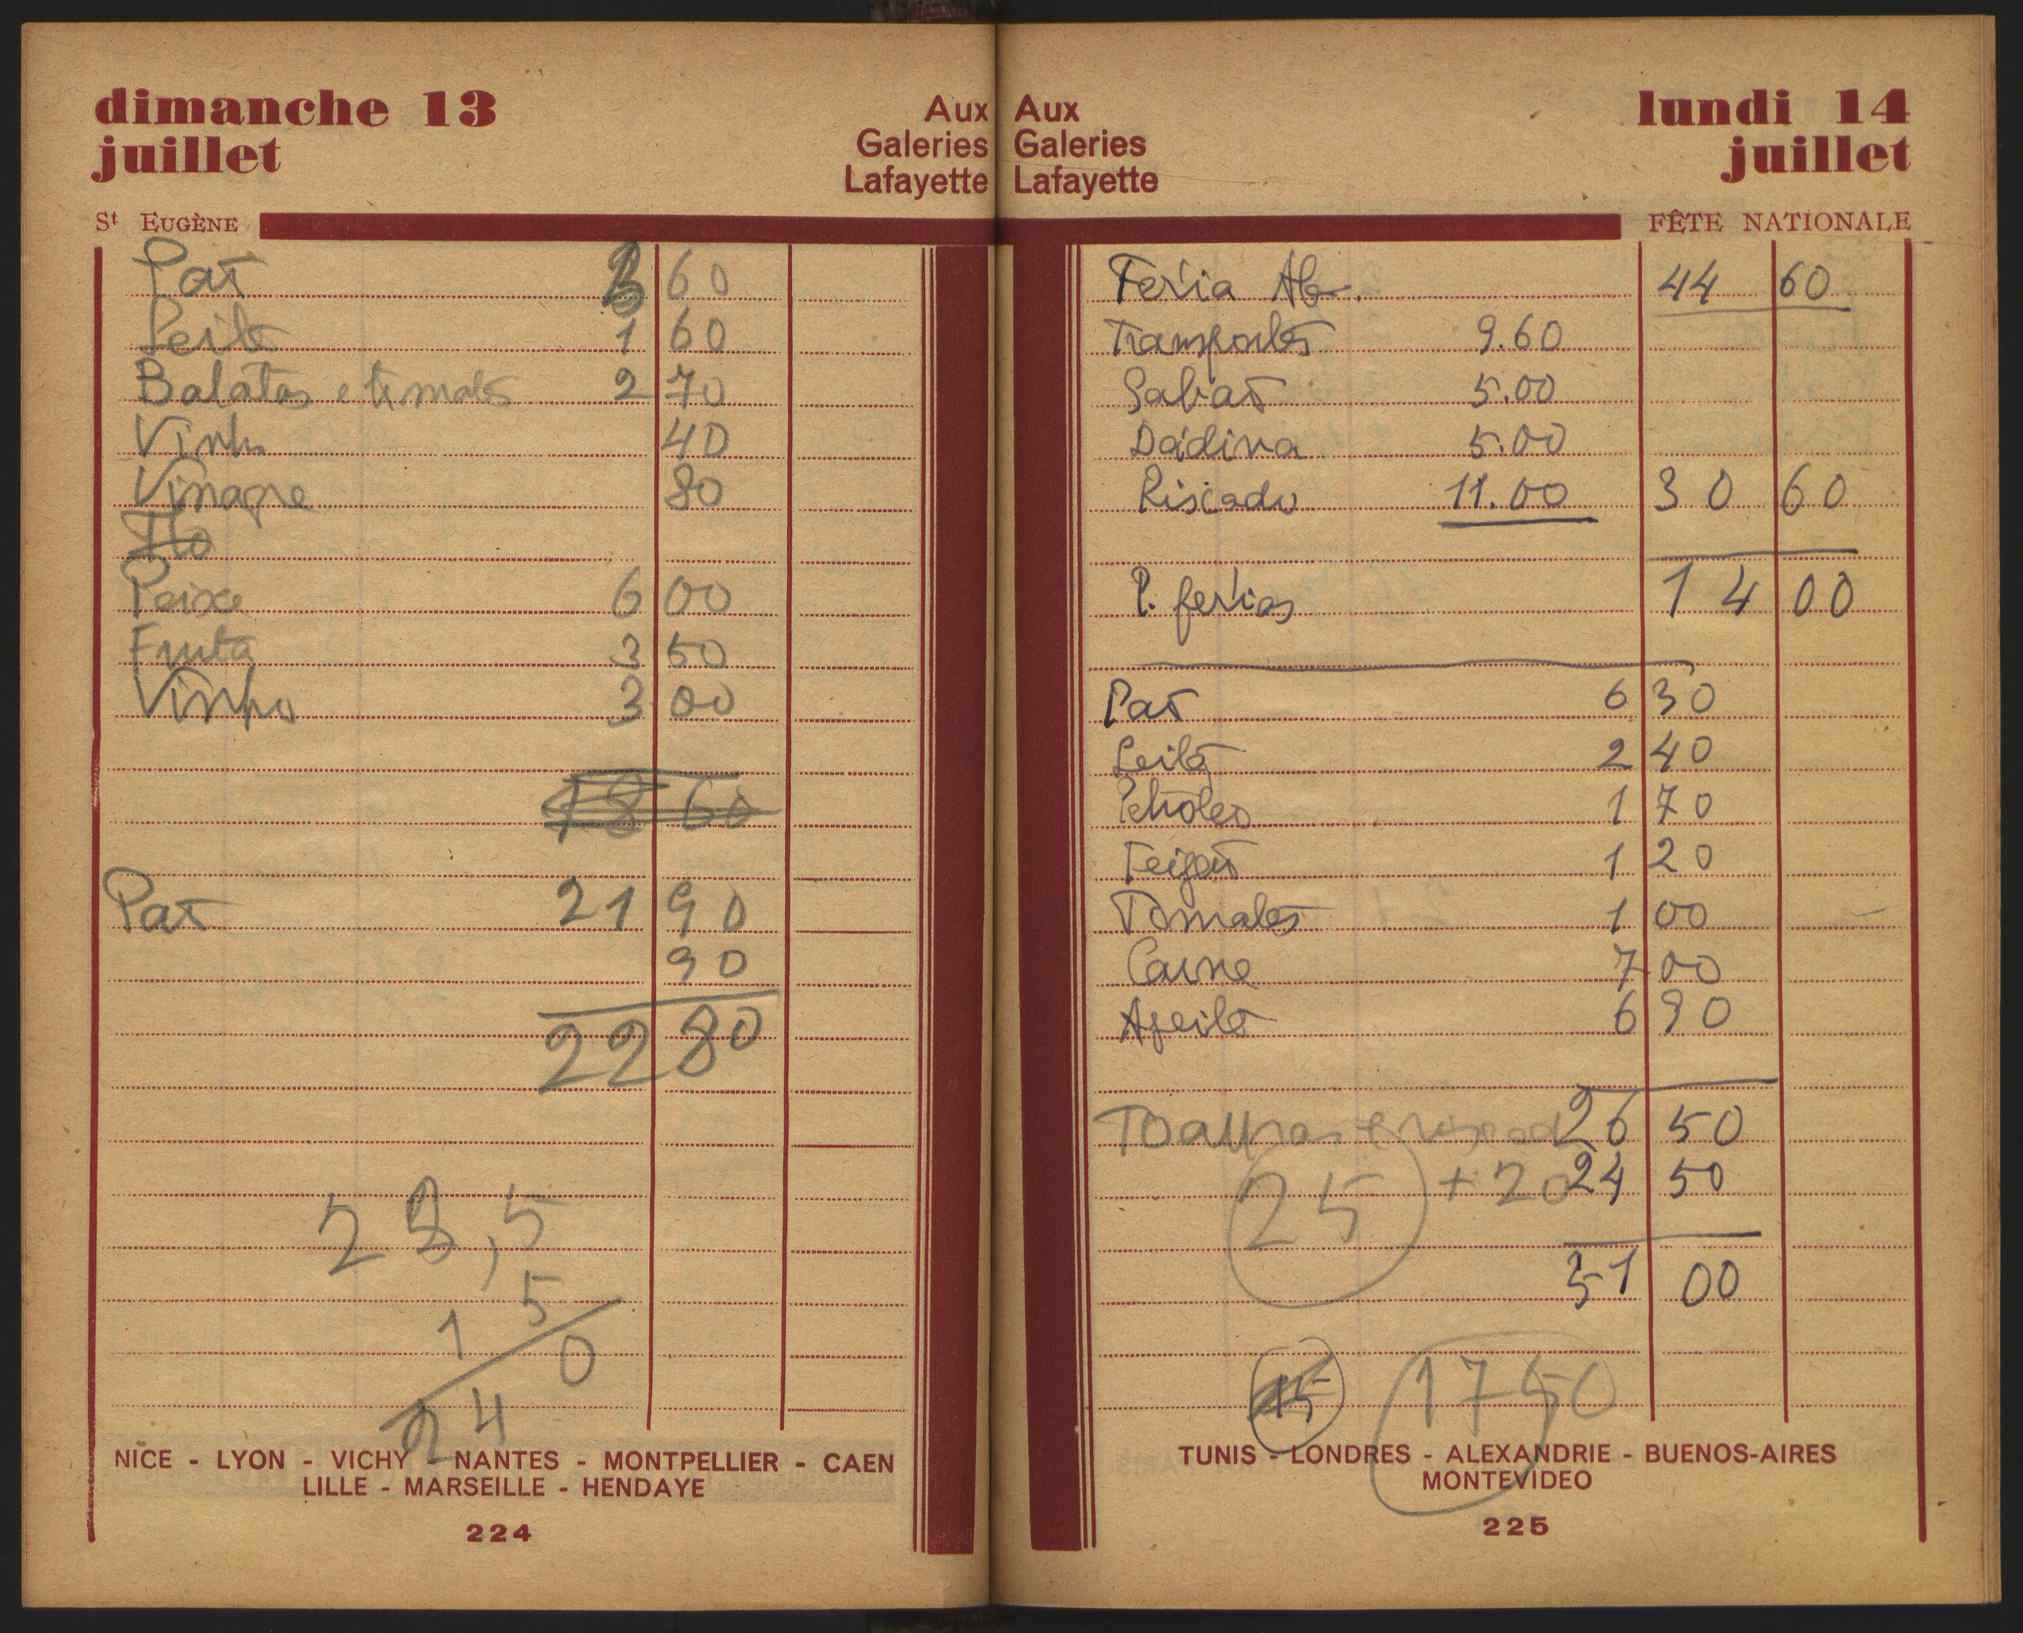 dimanche 13
juillet
Aux
Galeries
Lafayette
St EUGÈNE
Pão 3 60
Leite 1 60
Batatas e tomates 2 70
Vinho 40
Vinagre 80
Peixe 6 00
Fruta 3 50
Vinho 3 00
18 60
Pão 21 90
90
22 80
22,5
1 5
24 0
NICE - LYON - VICHY - NANTES - MONTPELLIER - CAEN
LILLE - MARSEILLE - HENDAYE
224
Aux
Galeries
Lafayette
lundi 14
juillet
FÊTE NATIONALE
Féria Ab. 44 60
Transportes 9.60
Sabão 5.00
Dádiva 5.00
Riscado 11.00 30 60
P. férias 14 00
Pão 6 30
Leite 2 40
Petróleo 1 70
Feijão 1 20
Tomates 1 00
Carne 7 00
Azeite 6 90
Toalhas e 26 50
25 + 20 24 50
51 00
15 1750
TUNIS - LONDRES - ALEXANDRIE - BUENOS-AIRES
MONTEVIDEO
225